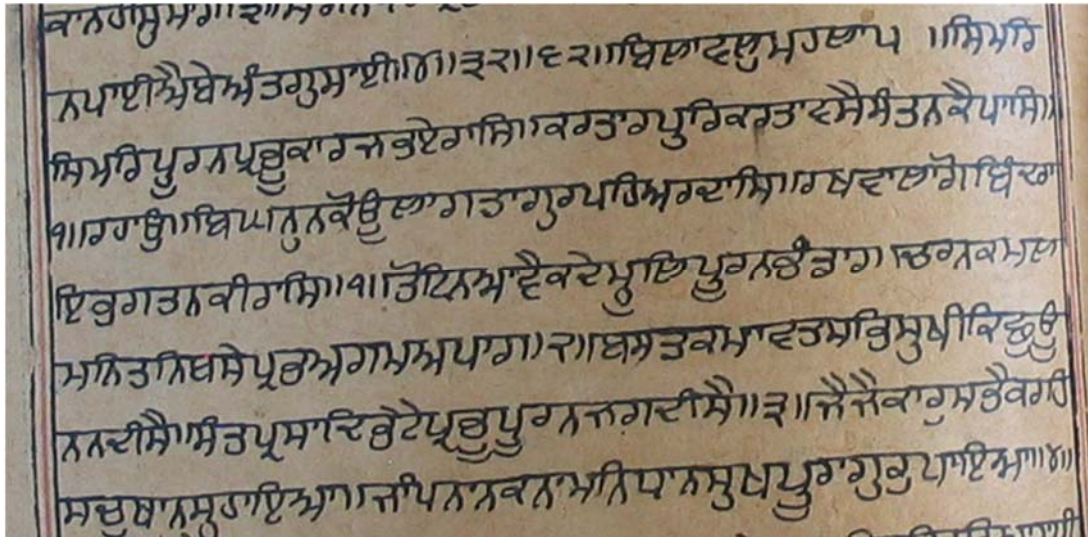 ਕਾਨਹਾਸੁਮਾਗਾ॥੩॥
ਨਪਾਈਐਬੇਅੰਤਗੁਸਾਈ॥੪॥੩੨॥੬੨॥ਬਿਲਾਵਲੁਮਹਲਾ੫ ॥ਸਿਮਰਿ
ਸਿਮਰਿਪੂਰਨਪ੍ਰਭੂਕਾਰਜਭਏਰਾਸਿ॥ਕਰਤਾਰਪੁਰਿਕਰਤਾਵਸੈਸੰਤਨਕੈਪਾਸਿ॥
੧॥ਰਹਾਉ॥ਬਿਘਨੁਨਕੋਊਲਾਗਤਾਗੁਰਪਹਿਅਰਦਾਸਿ॥ਰਖਵਾਲਾਗੋਬਿੰਦਰਾ
ਇਭਗਤਨਕੀਰਾਸਿ॥੧॥ਤੋਟਿਨਆਵੈਕਦੇਮੂਲਿਪੂਰਨਭੰਡਾਰ॥ਚਰਨਕਮਲ
ਮਨਿਤਨਿਬਸੇਪ੍ਰਭਅਗਮਅਪਾਰ॥੨॥ਬਸਤਕਮਾਵਤਸਭਿਸੁਖੀਕਿਛੁਊ
ਨਨਦੀਸੈ॥ਸੰਤਪ੍ਰਸਾਦਿਭੇਟੇਪ੍ਰਭੂਪੂਰਨਜਗਦੀਸੈ॥੩॥ਜੈਜੈਕਾਰੁਸਭੈਕਰਹਿ
ਸਚੁਥਾਨੁਸੁਹਾਇਆ॥ਜਪਿਨਾਨਕਨਾਮਨਿਧਾਨਸੁਖਪੂਰਾਗੁਰੁਪਾਇਆ॥੪॥